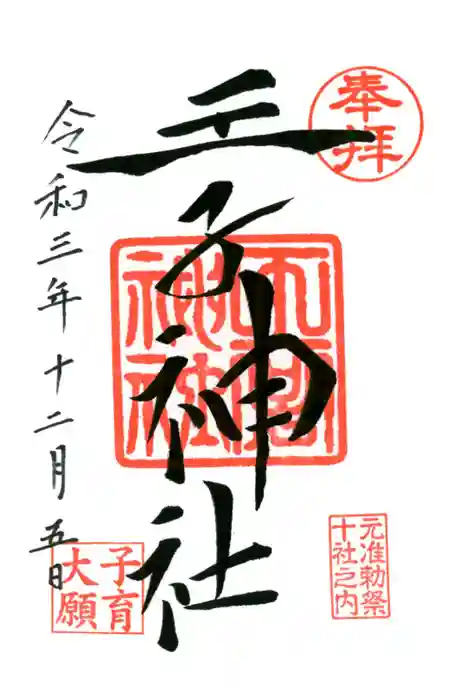 奉拝
王子神社
令和三年十二月五日
元准勅祭
十社之内
子育
大願